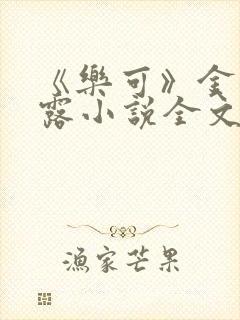 《樂可》金
露小說全文
漁家芒果